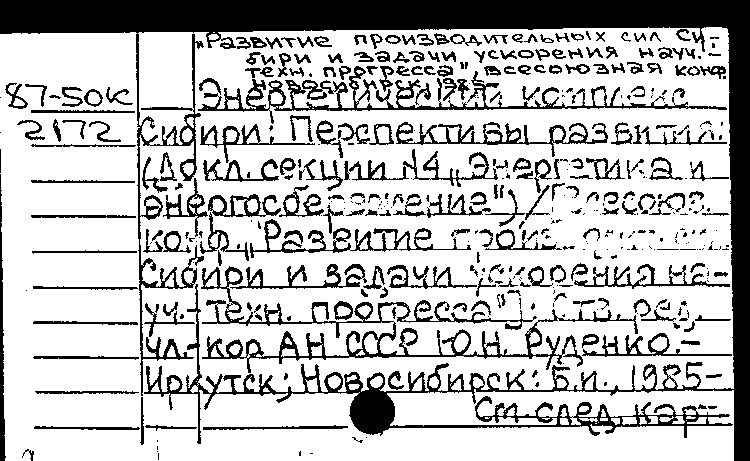 „Развитие производительных сил Си-
бири и задачи ускорения науч.-
техн. прогресса", всесоюзная конф.
Новосибирск, 1985
87-50к Энергетический комплекс
2172 Сибири: Перспективы развития:
(Докл. секции №4 „Энергетика и
энергосбережение") / [Всесоюз.
конф. „Развитие произ. сил
Сибири и задачи ускорения на-
уч.- техн. прогресса"]; Отв. ред.
чл.-кор АН СССР Ю.Н. Руденко.-
Иркутск; Новосибирск: Б.и., 1985-
См. след. карт.